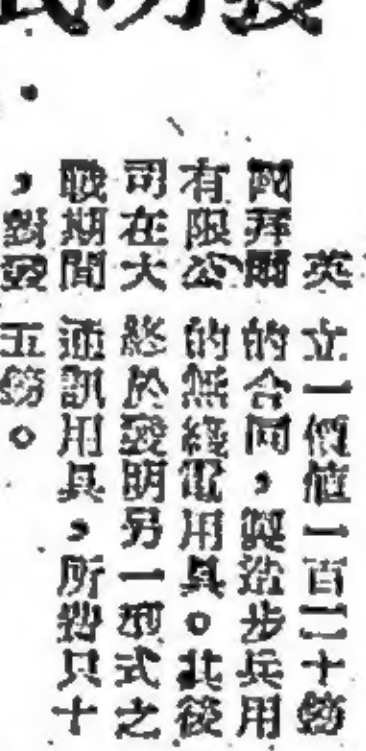 英
國拜爾
有限公
司在大
戰期間
，對發
立一價值一百二十鎊
的合同，製造步兵用
的無綫電用具。其後
終於發明另一型式之
通訊用具，所費只十
五鎊。